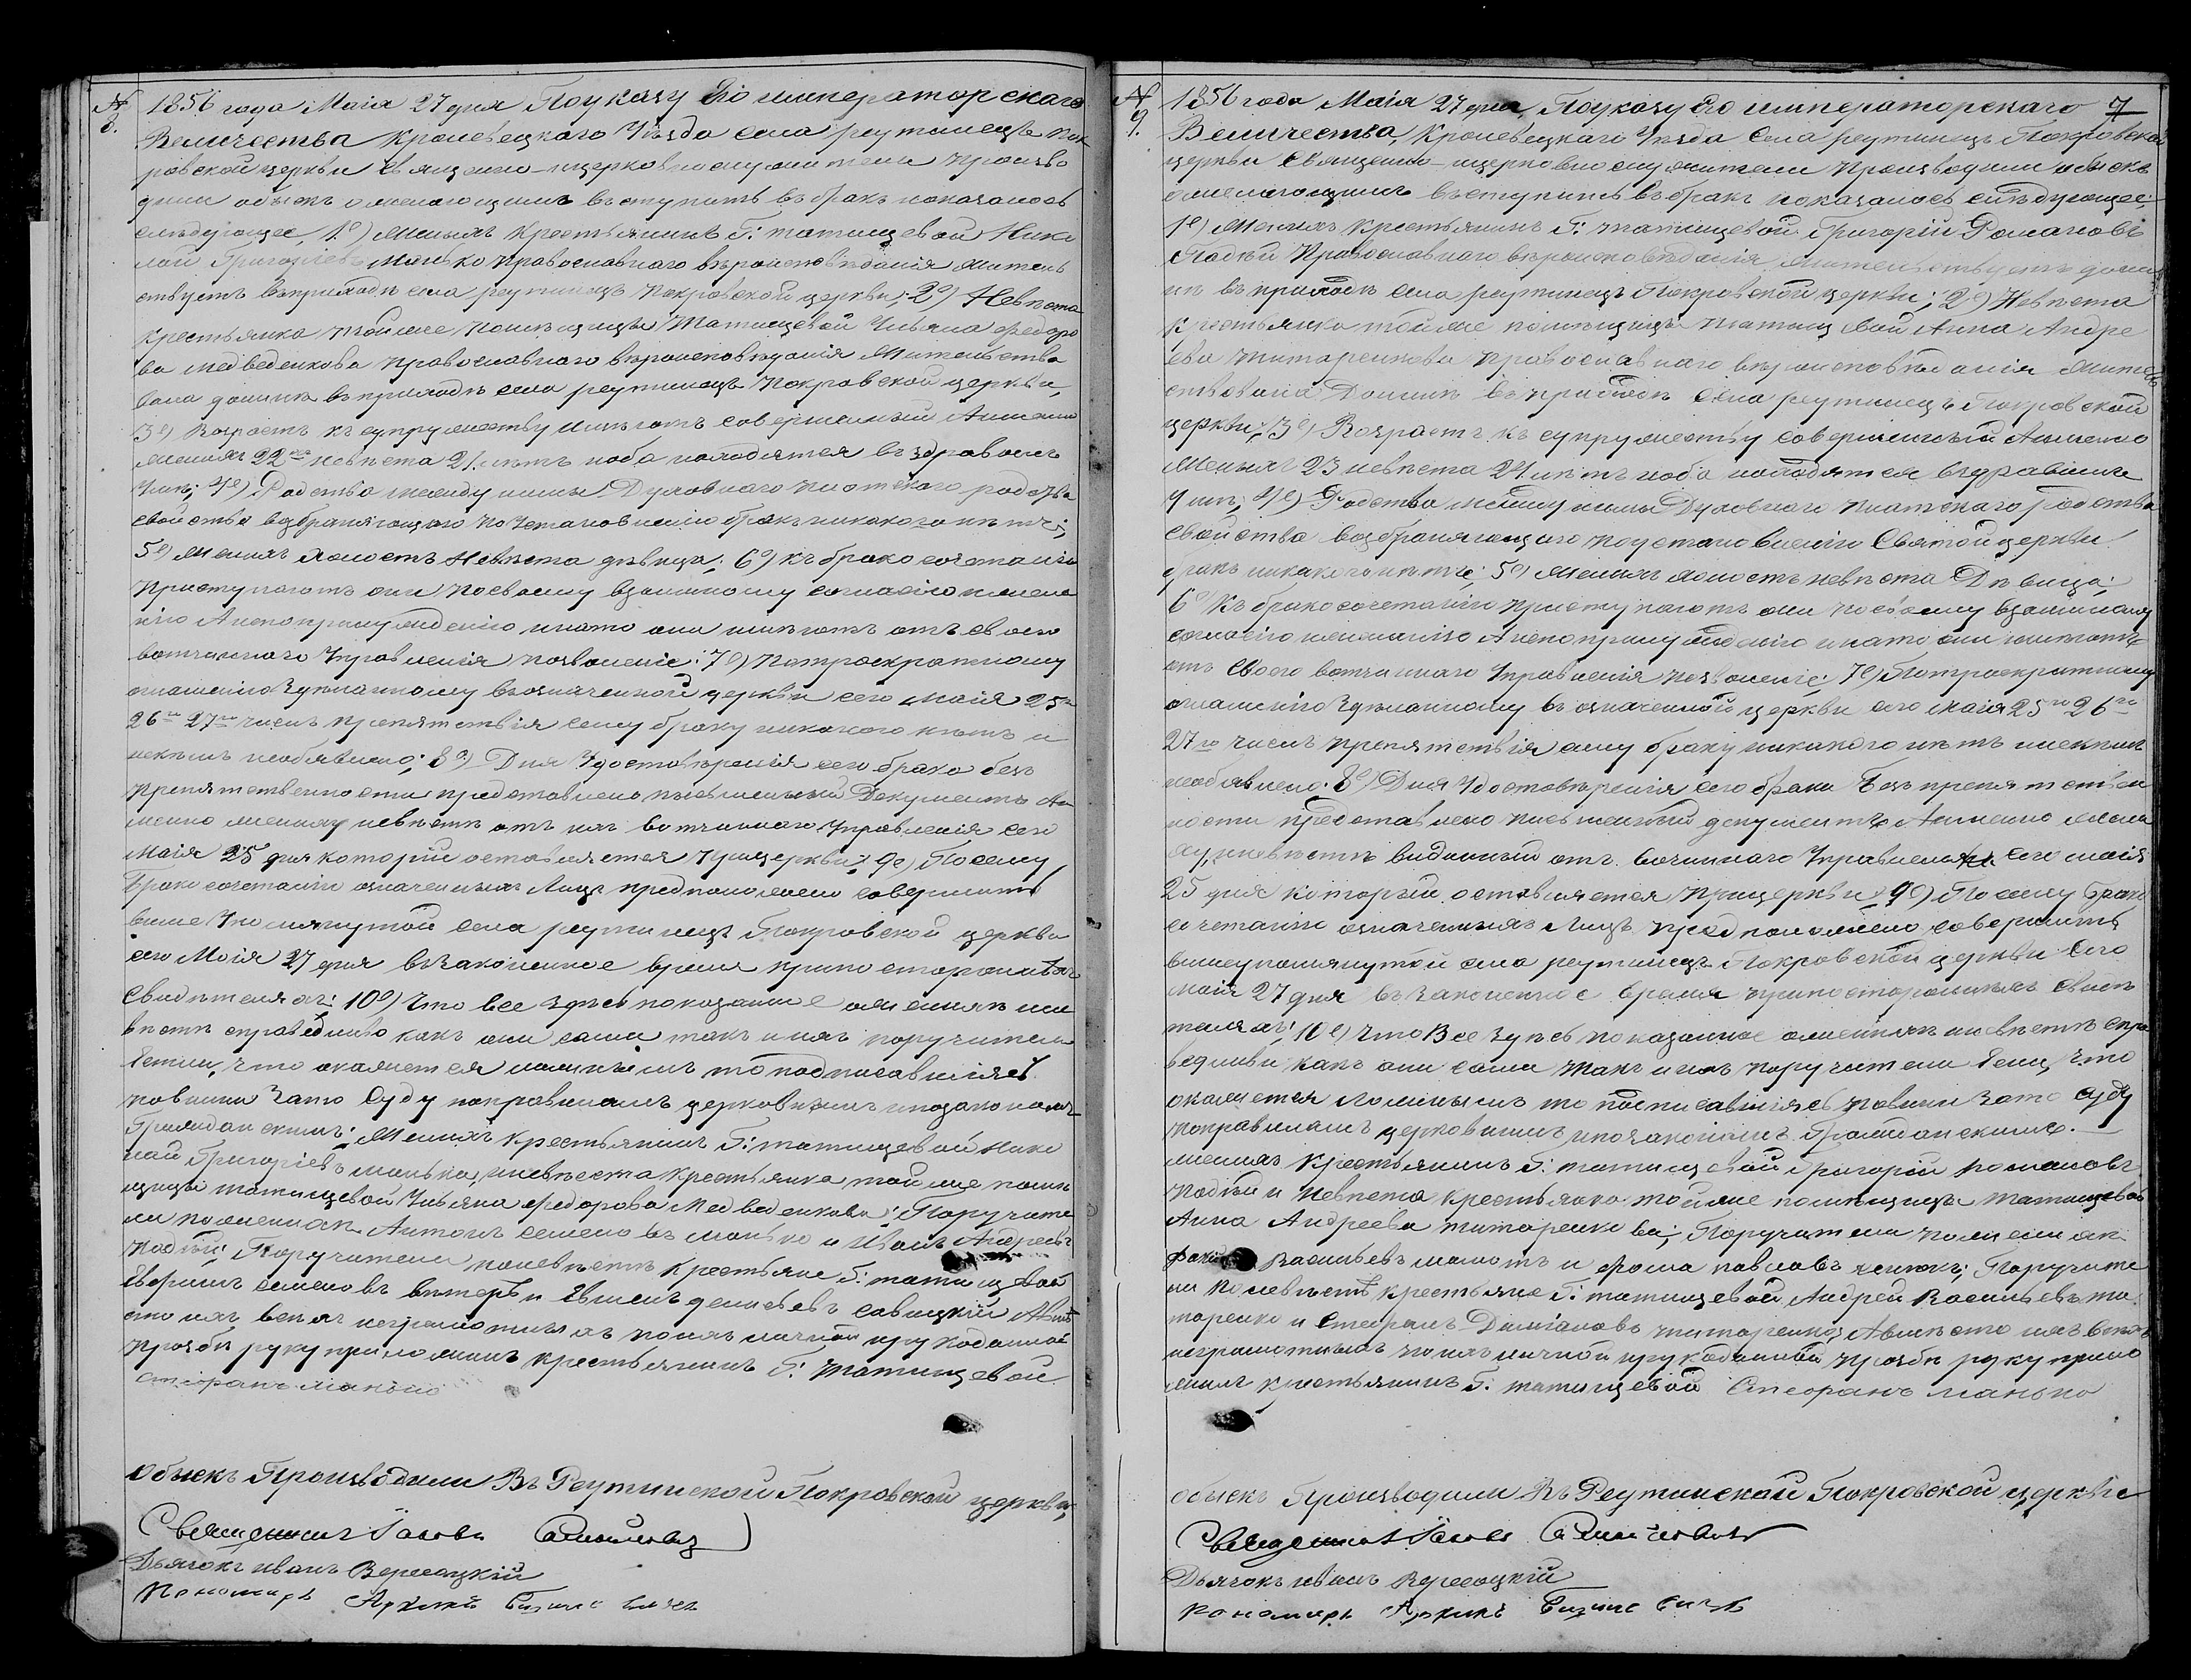 № 8.
1856 года Маія 27 дня Поуказу Его императорскаго
Величества Кролевецкаго Уѣзда села реутинецъ пок
ровской церкви священно-ицерковнослужители произво
дили обыскъ ожелающимъ вступить въ бракъ показалось
слѣдующее, 1е) Женихъ крестьянинъ Г: татищевой Нико
лай Григоріевъ Манько православнаго вѣроисповѣданія житель
ствуетъ въприходѣ села реутинецъ покровской церкви; 2е) Невѣста
крестьянка тойже помѣщицы Татищевой Ульяна федоро
ва медведенкова православнаго вѣроисповѣданія жительство
вала донынѣ въ приходѣ села реутинецъ покровской церкви,
3е) Возрастъ къ супружеству имѣютъ совершенный Аименно
женихъ 22хъ невѣста 21 лѣтъ иоба находятся въ здравомъ
Умѣ; 4е) Родства между ними Духовнаго плотскаго родства
свойства возбраняющаго по Установленію бракъ никакого нѣтъ;
5е) Женихъ холостъ Невѣста дѣвица; 6е) Къ бракосочетанію
приступаютъ они посвоему взаимному согласію ижела
нію Анепопринужденію инато они имѣютъ отъ своего
вотчиннаго Управленія позволеніе; 7е) Потроекратному
оглашенію Здѣланному въозначенной церкви сего Маія 25го
26го 27го числъ препятствія сему браку никакого нѣтъ и
некѣмъ необявлено; 8е) Для Удостовѣренія сего брака без
препятственности представлено письменный Документъ Аи
менно жениху иневѣстѣ отъ ихъ вотчиннаго Управленія сего
Маія 25 дня которій оставляется Прицеркви; 9е) Посему
Бракосочетаніе означенныхъ Лицъ предположено совершить
выше Упомянутой села реутинецъ Покровской церкви
сего Маія 27 дня въ законенное время при постороннихъ
Свидѣтеляхъ; 10е) Что все здѣсь показанное оженихѣ ине
вѣстѣ справедливо какъ они сами такъ и ихъ поручители
Естли, что окажется ложнымъ то подписавшіясь
повинни Зато Суду поправиламъ церковнымъ ипозаконамъ
Гражданскимъ; Женихъ крестьянинъ Г: татищевой Нико
лай Григоріевъ манько, иневѣста крестьянка тойже помѣ
щицы татищевой Ульяна федорова Медведенкова; Поручите
ли поженихѣ Антонъ семеновъ манько и Иванъ Андреевъ
подкуй; Поручители поневѣстѣ Крестьяне Г: татищевой
семеновъ и савицкій Авмѣ
сто ихъ всѣхъ неграмотныхъ поихъ личной ирукоданной
прозбѣ руку приложилъ крестьянинъ Г: Татищевой
Стефанъ Манько
Обыскъ Производили Въ Реутинской Покровской церкви;
Священникъ Іаковъ Самойловичъ
Дьячокъ иванъ Вересоцкій
Пономарь
№ 9. 7
1856 года Маія 27 дня, Поуказу Его императорскаго
Величества, Кролевецкаго Уѣзда Села реутинецъ Покровской
церкви Священно-ицерковнослужители производили обыскъ
ожелающимъ въступить въ бракъ показалось слѣдующее;
1е) Женихъ Крестьянинъ Г: татищевой Григорій Романовъ
Подкуй Православнаго вѣроисповѣданія жительствуетъ доны
нѣ въ приходѣ села реутинецъ Покровской церкви; 2е) Невѣста
крестьянка тойже помѣщицы татищевой Анна Андре
ева титаренкова православнаго вѣроисповѣданія житель
ствовала Донынѣ въ приходѣ села реутинецъ Покровской
церкви; 3е) Возрастъ къ супружеству совершенный Аименно
Женихъ 23 невѣста 21 лѣтъ иоба находятся въздравомъ
Умѣ; 4е) Родства между ними Духовнаго плотскаго родства
Свойства возбраняющаго поустановленію Святой церкви
бракъ никакого нѣтъ; 5е) Женихъ холостъ невѣста Дѣвица;
6е) Къ бракосочетанію приступаютъ они посвоему взаимному
согласію ижеланію Анепопринужденію инато они имѣютъ
отъ своего вотчиннаго Управленія позволеніе; 7е) Потроекратному
оглашенію Здѣланному въ означенной церкви сего маія 25го 26го
27го числъ препятствія сему браку никакого нѣтъ инекѣмъ
необявлено; 8е) Для Удостовѣренія сего брака безъ препятствен
ности представлено письменный документъ Аименно жени
ху, иневѣстѣ виданный отъ вочинаго Управленія сего маія
25 дня которій оставляется прицеркви; 9е) Посему Брако
сочетаніе означенныхъ Лицъ предположено совершить
вышеупомянутой села реутинецъ Покровской церкви Сего
маія 27 дня въ Законенное время припостороннихъ свидѣ
теляхъ; 10е) Что Все Здѣсь показанное оженихѣ иневѣстѣ спра
ведливи какъ они сами такъ и ихъ поручители Если, что
окажется Ложнымъ то подписавшіясь повини Зато суду
поправиламъ церковнимъ ипозаконамъ Гражданскимъ.
женихъ Крестьянинъ Г: татищевой Григорій Романовъ
подкуй и невѣста крестьянка тойже помѣщицы татищевой
Анна Андреева титаренкова; Поручители поженихѣ
Васильевъ и фома павловъ; Поручите
ли поневѣстѣ крестьяне Г: татищевой Андрей Васильевъ ти
таренко и Стефанъ Даміановъ титаренко, Авмѣсто ихъ всѣхъ
неграмотныхъ поихъ личной ирукоданной прозбѣ руку прило
жилъ крестьянинъ Г: татищевой Стефанъ манько
Обыскъ Производили Въ Реутинской Покровской церкви
Священникъ Іаковъ Самойловичъ
Дьячокъ иванъ Вересоцкій
пономарь